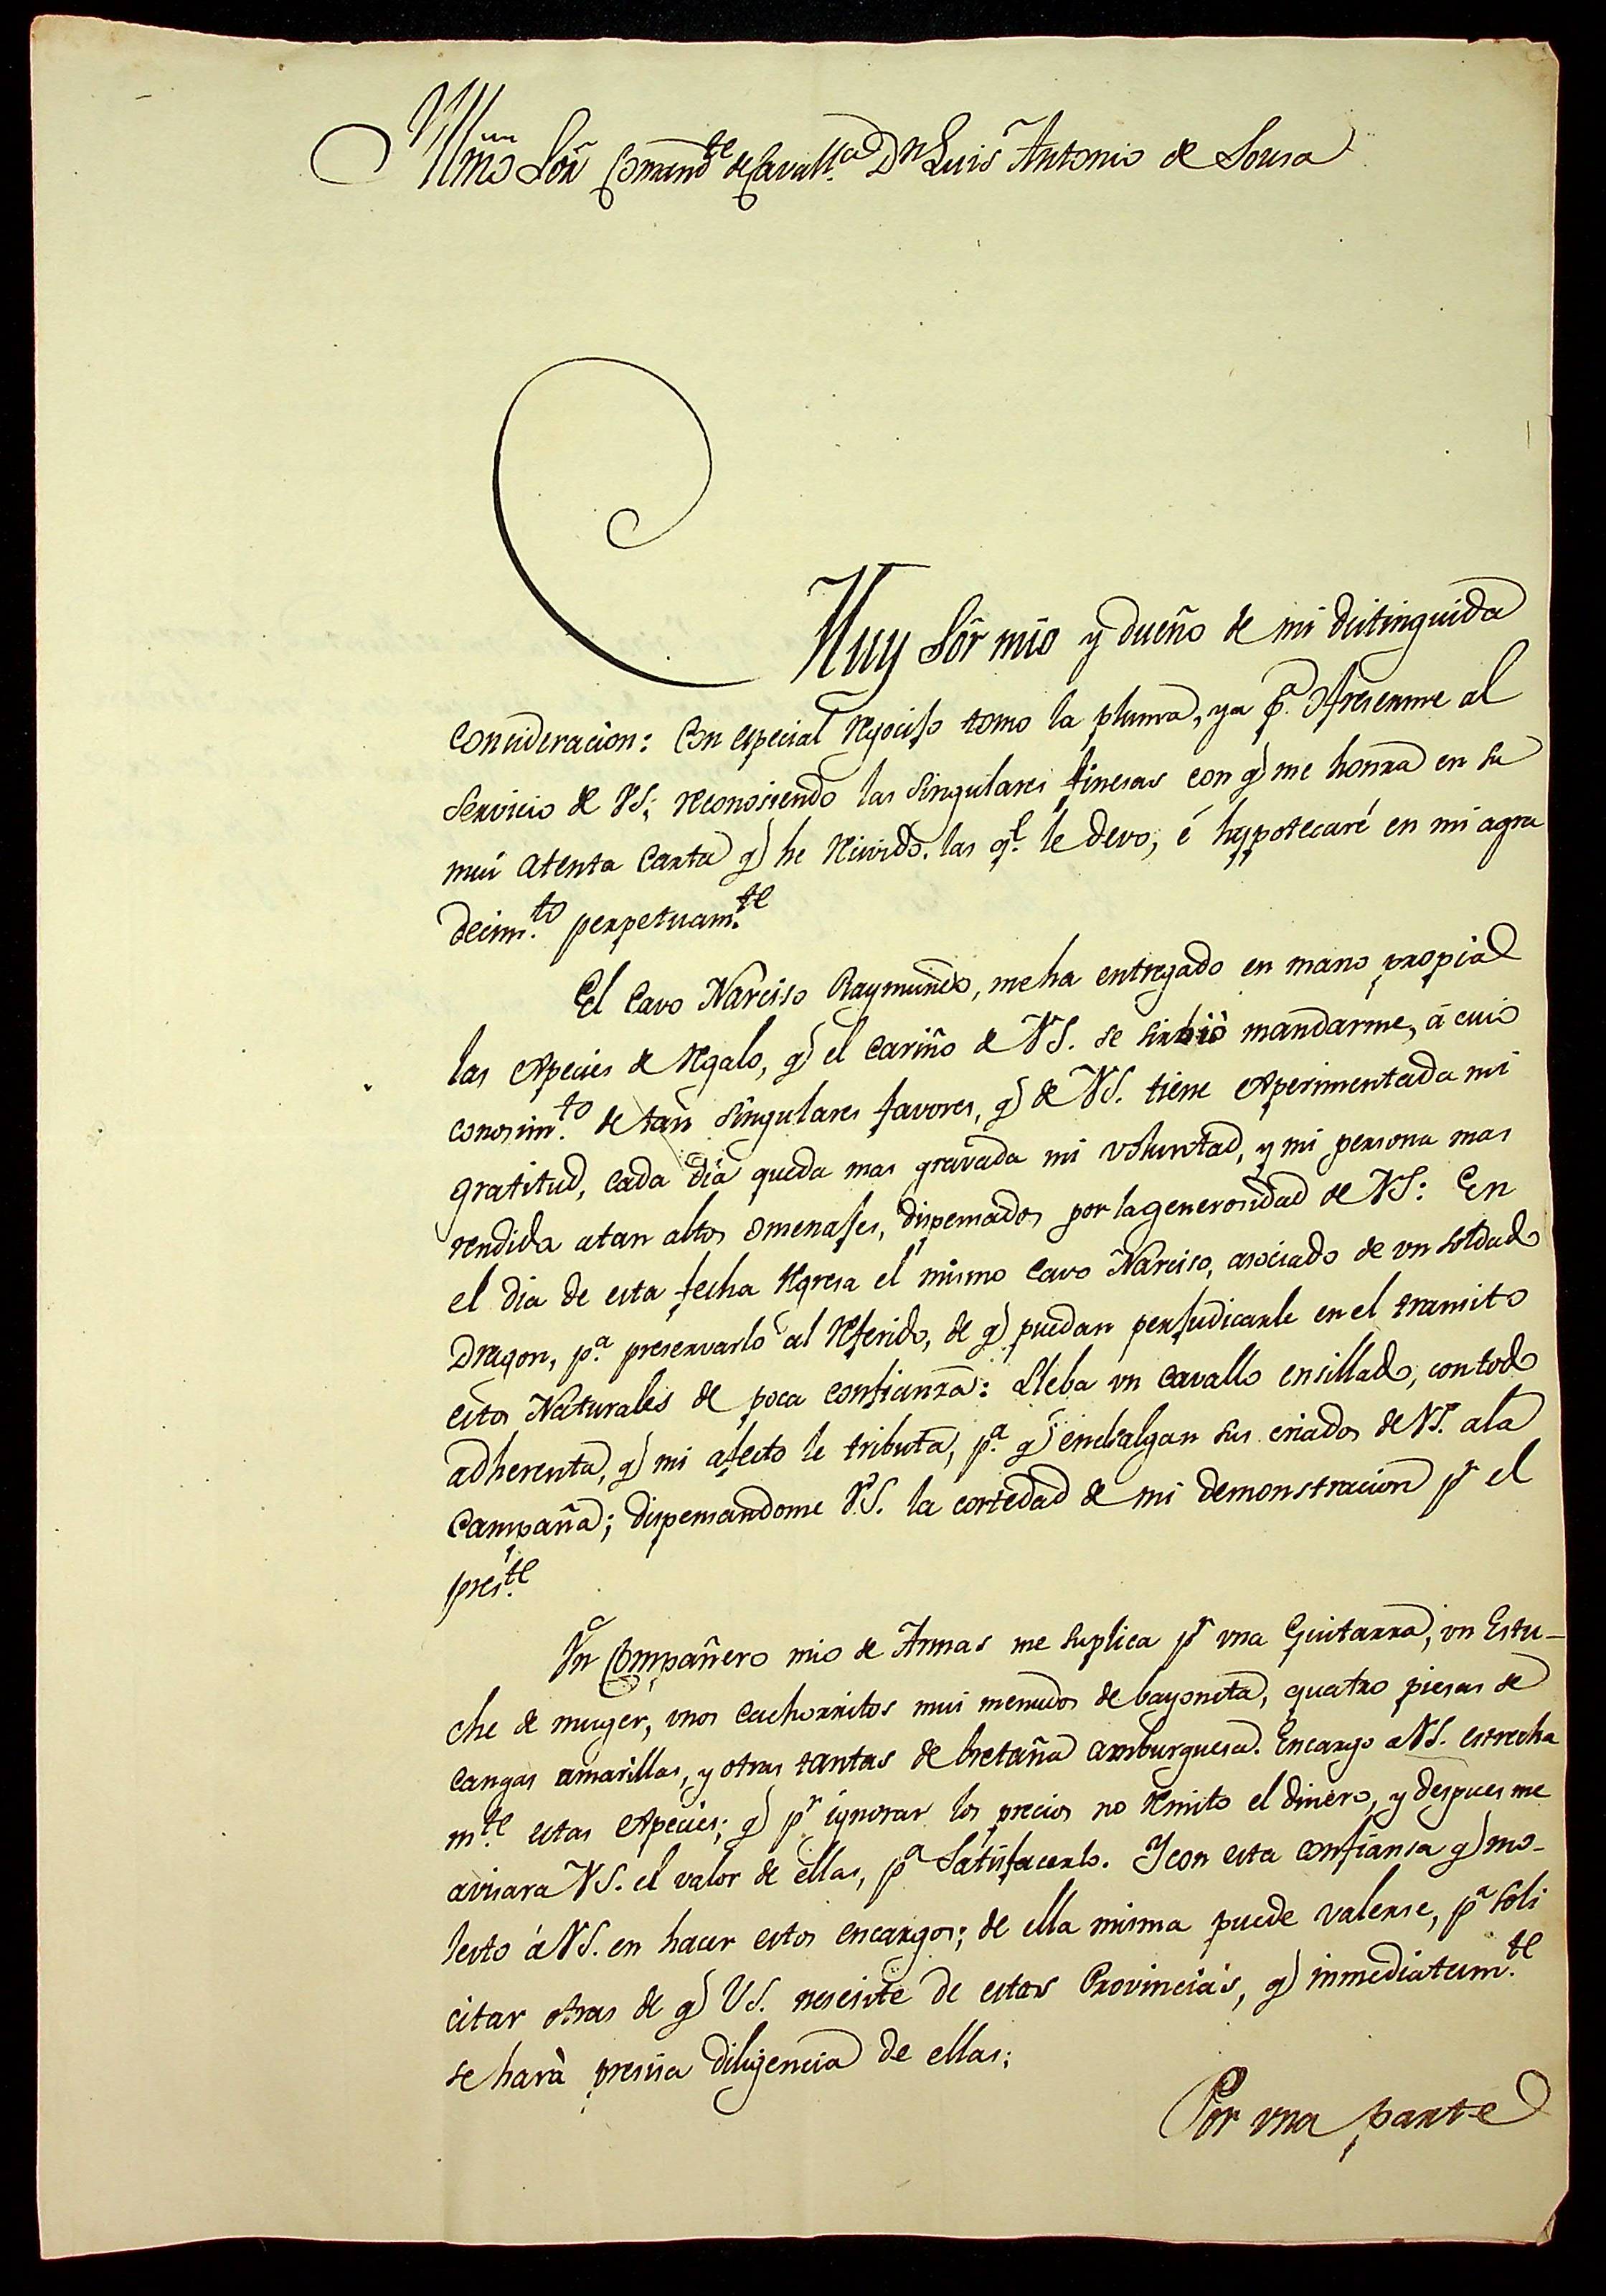 Illmõ Sõr Comand.te de Cavall.a Dn Luis Antonio de Sousa
Muy Sõr mio y dueño de mi distinguida
consideracion: Con especial regocijo tomo la pluma, ya p.a ofreserme al
servicio de VS; reconosiendo las singulares finesas con q) me honrra en su
mui atenta carta q) he recivido. las q.l le devo, é hypotecaré en mi agra
decim.to perpetuam.te
El Cavo Narciso Raymundo, me ha entregado en mano propia
las especies de regalo, q) el cariño de VS. se sirbiò mandarme, á cuio
conosim.to de tan singulares favores, q) de VS. tiene experimentada mi
gratitud, cada dia queda mas gravada mi voluntad, y mi persona mas
rendida atan altos omenajes, dispensados por la generosidad de VS: En
el dia de esta fecha regresa el mismo Cavo Narciso, asociado de vn soldado
Dragon, p.a preservarlo al referido, de q) puedan perjudicarle en el transito
estos Naturales de poca confianza: Lleba vn cavallo ensillado, con todo
adherenta, q) mi afecto le tributa, p.a q) salgan sus criados de VS. ala
Campaña; dispensandome V.S. la cortedad de mi demonstracion pr el
pres.te
Vn Compañero mio de Armas me suplica pr vna Guitarra, vn Estu-
che de muger, vnos cachorritos mui menudos de bayoneta, quatro piesas de
cangas amarillas, y otras tantas de bretaña amburguesa. Encargo aVS. estrecha
m.te estas especies; q) pr ignorar los precios no remito el dinero, y despues me
avisara VS. el valor de ellas, pa satisfacerlo. Y con esta confiansa q) mo-
lesto á VS. en hacer estos encargos; de ella misma puede valerse, pa soli
citar otras de q) VS. nesesite de estas Provincias, q) inmediatam.te
se harà presisa diligencia de ellas;
Por vna parte